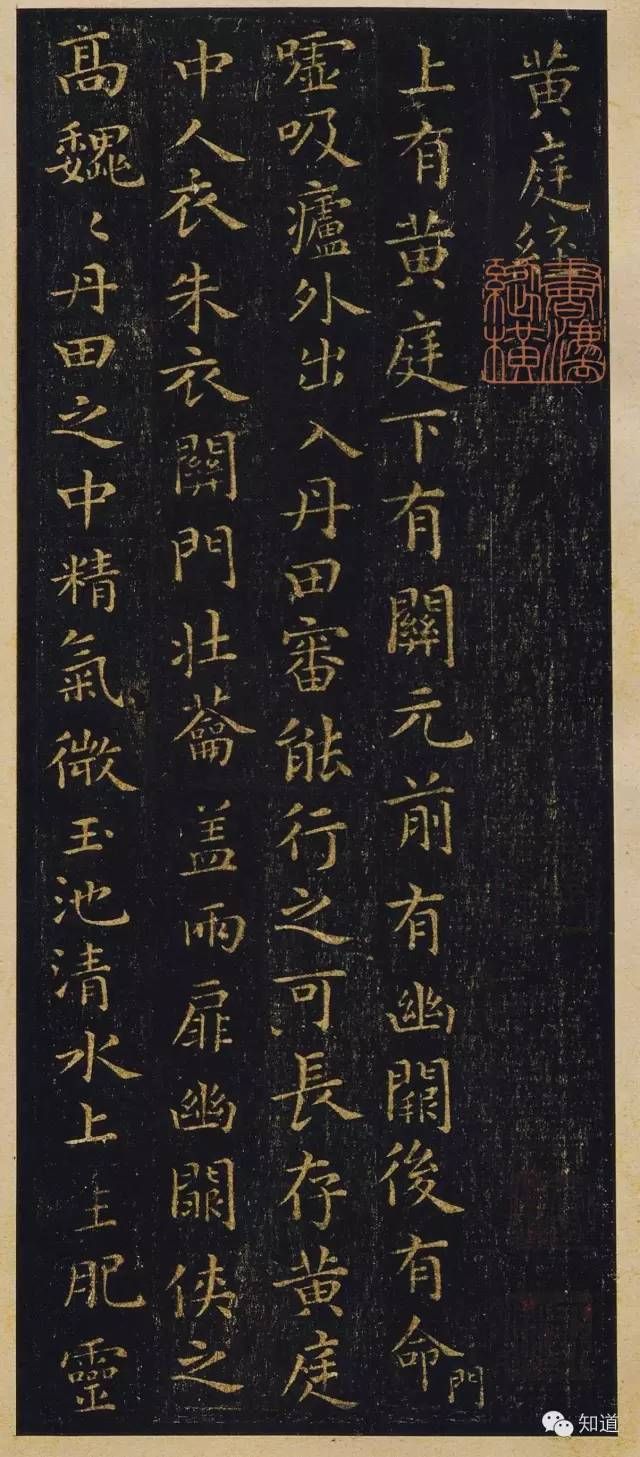 黄庭經
上有黄庭下有關元前有幽闕後有命門
嘘吸廬外出入丹田審能行之可長存黄庭
中人衣朱衣關門壮蘥盖兩扉幽闕侠之
高巍〻丹田之中精氣微玉池清水上生肥靈
知道